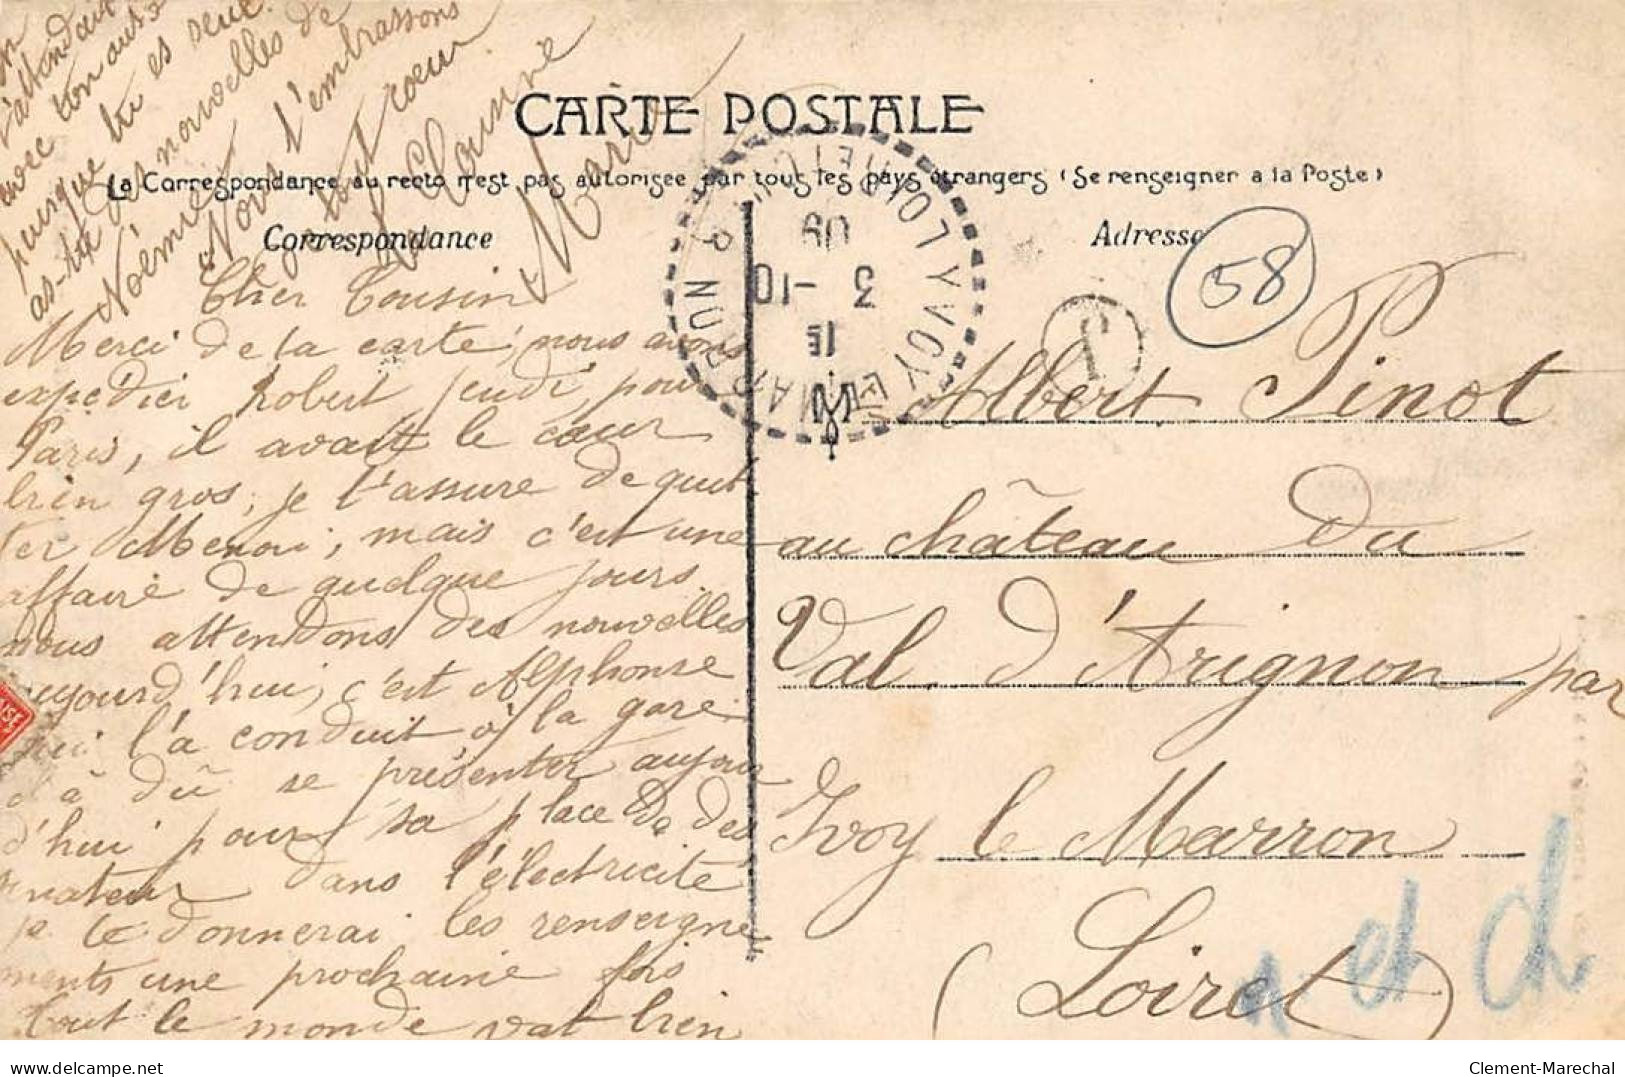 CARTE POSTALE
La Correspondance au recto n'est pas autorisée par tous les pays étrangers (Se renseigner a la Poste)
Correspondance
Adresse
58
Cher Cousin
Merci de la carte, nous avons
expédier Robert jeudi, pour
Paris, il avait le cœur
bien gros, je t'assure de quit
ter Menoi, mais c'est une
affaire de quelque jours.
nous attendons des nouvelles
aujourd'hui, c'est Alphonse
qui l'a conduit à la gare.
il a dû se présenter aujour
d'hui pour sa place de des
inateur dans l'électricité
je te donnerai les renseigne
ments une prochaine fois
tout le monde vat bien
j'attendait
avec ton
puisque tu es seul.
as-tu des nouvelles de
Noémie
Nous t'embrassons
de tout cœur
Marie
IVOY-LE-MARRON
LOIR-ET-CHER
3 -10
09
T
Albert Pinot
au château du
Val d'Arignon par
Yvoy le Marron
(Loiret)
et Ch
delcampe.net
Clement-Marechal